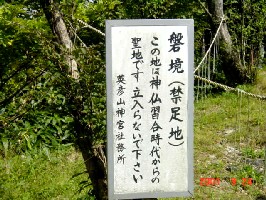 磐境(禁足地)
この地は神仏習合時代からの
聖地です 立入らないで下さい
英彦山神宮社務所